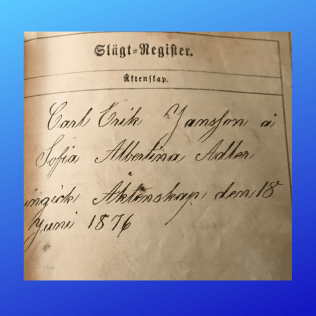 Slägt-Register.
Äktenskap.
Carl Erik Jansson å
Sofia Albertina Adler
ingick Äktenskap den 18
Juni 1876